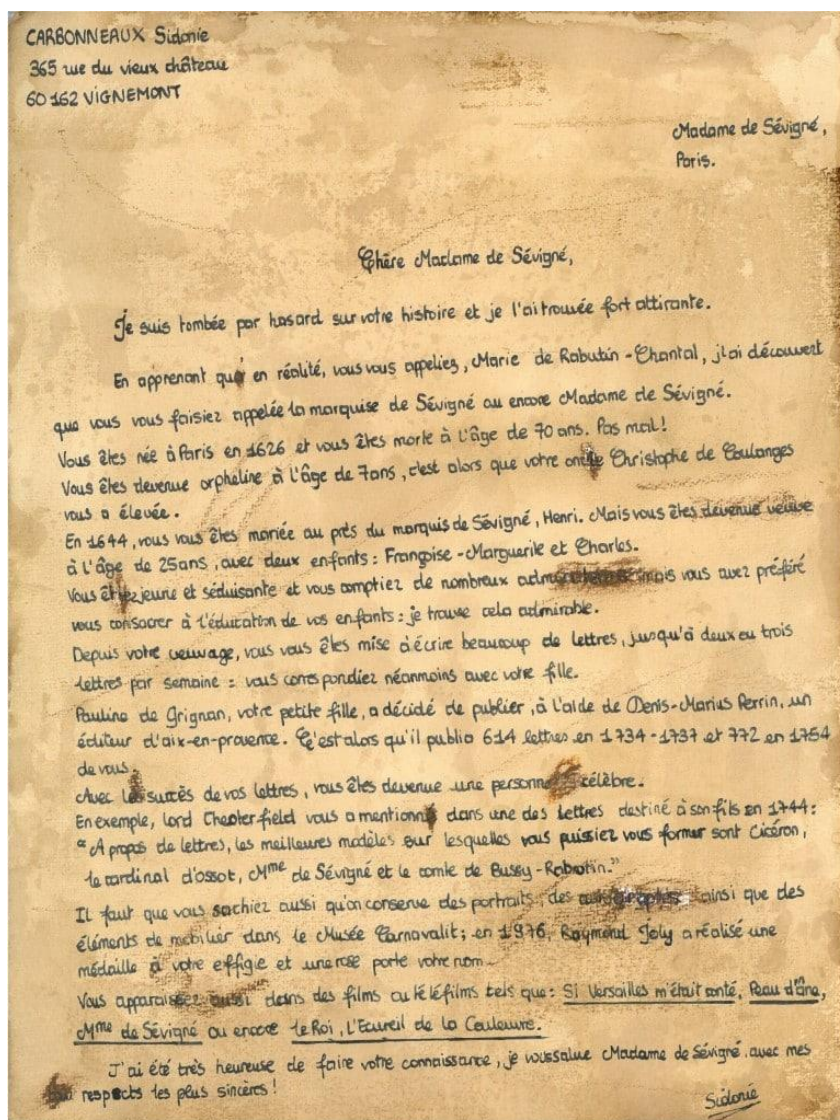 CARBONNEAUX Sidonie
365 rue du vieux château
60 162 VIGNEMONT
Madame de Sévigné,
Paris.
Chère Madame de Sévigné,
Je suis tombée par hasard sur votre histoire et je l'ai trouvée fort attirante.
En apprenant qu' en réalité, vous vous appeliez, Marie de Rabutin-Chantal, j'ai découvert
que vous vous faisiez appelée la marquise de Sévigné ou encore Madame de Sévigné.
Vous êtes née à Paris en 1626 et vous êtes morte à l'âge de 70 ans. Pas mal!
Vous êtes devenue orpheline à l'âge de 7ans, c'est alors que votre oncle Christophe de Coulanges
vous a élevée.
En 1644, vous vous êtes mariée au près du marquis de Sévigné, Henri. Mais vous êtes devenue veuve
à l'âge de 25ans, avec deux enfants : Françoise-Marguerite et Charles.
Vous étiez jeune et séduisante et vous comptiez de nombreux mais vous avez préféré
vous consacrer à l'éducation de vos enfants : je trouve cela admirable.
Depuis votre veuvage, vous vous êtes mise à écrire beaucoup de lettres, jusqu'à deux ou trois
lettres par semaine : vous correspondiez néanmoins avec votre fille.
Pauline de Grignan, votre petite fille, a décidé de publier, à l'aide de Denis-Marius Perrin, un
éditeur d'aix-en-provence. C'est alors qu'il publia 614 lettres en 1734-1737 et 772 en 1754
de vous.
Avec les succès de vos lettres, vous êtes devenue une personne célèbre.
En exemple, lord Chesterfield vous a mentionné dans une des lettres destiné à son fils en 1744:
"A propos de lettres, les meilleures modèles sur lesquelles vous puissiez vous former sont Cicéron,
le cardinal d'ossot, Mme de Sévigné et le comte de Bussy-Rabutin."
Il faut que vous sachiez aussi qu'on conserve des portraits, des ainsi que des
éléments de mobilier dans le Musée Carnavalit; en 1976, Raymond Joly a réalisé une
médaille à votre effigie et une rose porte votre nom.
Vous apparaissez aussi dans des films ou téléfilms tels que: Si Versailles m'était conté, Peau d'âne,
Mme de Sévigné ou encore Le Roi, L'Ecureil de la Couleuvre.
J'ai été très heureuse de faire votre connaissance, je vous salue Madame de Sévigné, avec mes
respects les plus sincères!
Sidonie